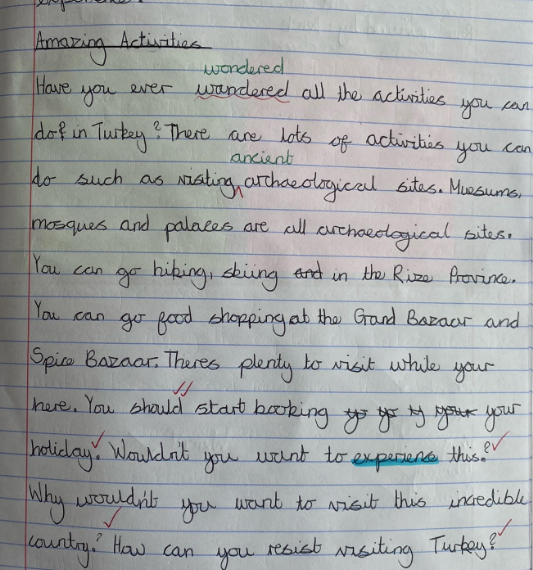 Amazing Activities
wondered
Have you ever wandered all the activities you can
do? in Turkey? There are lots of activities you can
ancient
do such as visting archaeological sites. Muesums,
mosques and palaces are all archaeological sites.
You can go hiking, skiing and in the Rize Province.
You can go food shopping at the Grand Bazaar and
Spice Bazaar. Theres plenty to visit while your
here. You should start booking your your
holiday. Wouldn't you want to experiens this?
Why wouldn't you want to visit this incredible
country? How can you resist visiting Turkey?